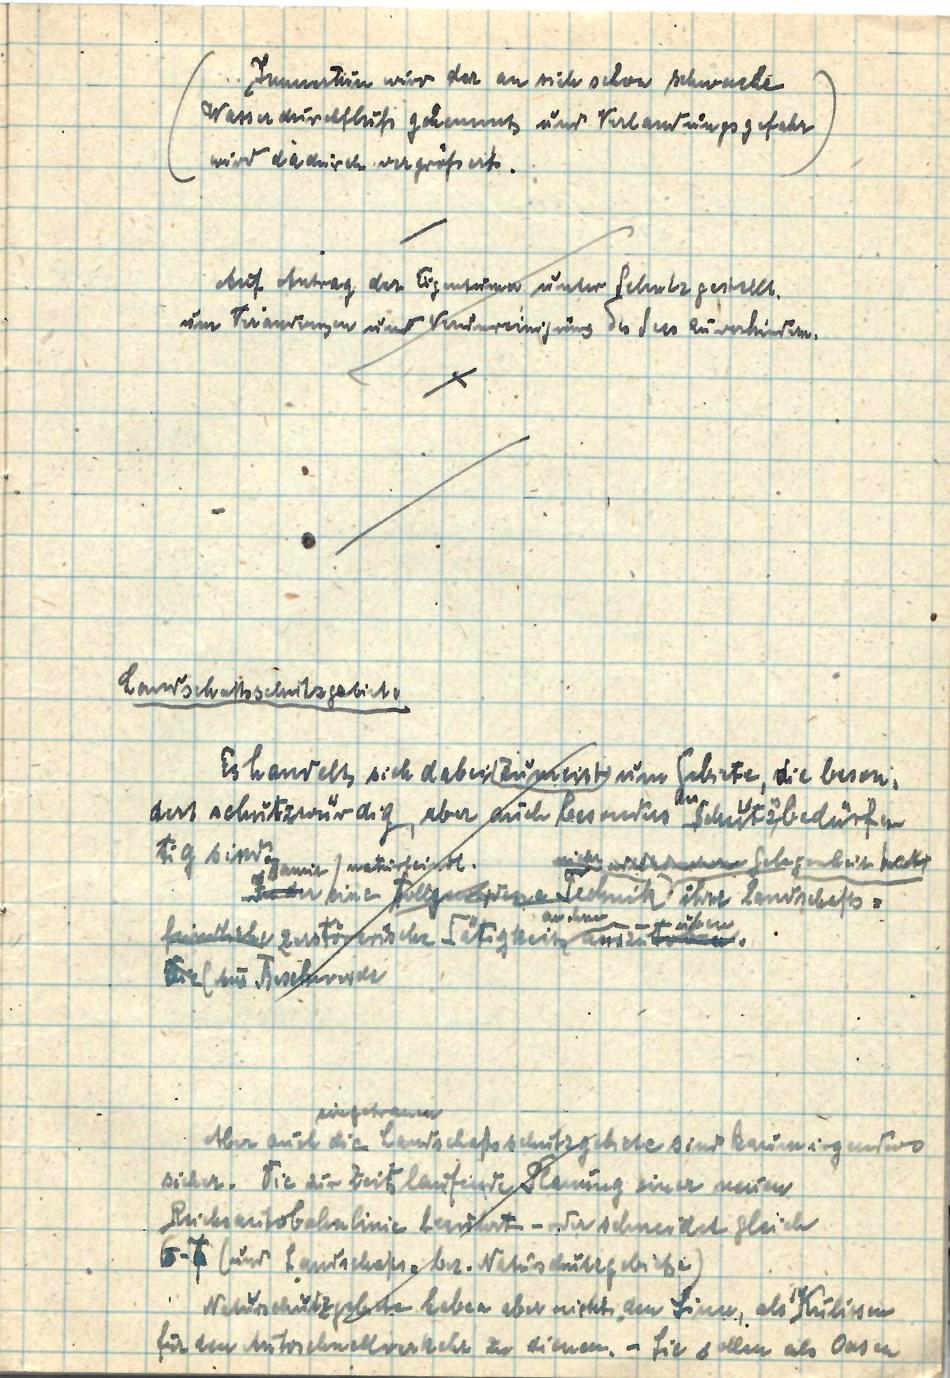 (Immerhin wird der an sich schon schwache
Wasserdurchfluß gehemmt und Verlandungsgefahr
wird dadurch vergrößert.)
Auf Antrag der Eigentümer unter Schutz gestellt.
um Veränderungen und Verunreinigung des Sees zu verhindern.
Landschaftsschutzgebiete
Es handelt sich dabei (zumeist) um Gebiete, die beson-
ders schutzwürdig, aber auch besonders des Schutzes bedürf
tig sind.
Damit / naturfeindl. nicht Gelegenheit hat
eine Technik ihre landschafts=
feindliche zerstörerische Tätigkeit auszu üben.
Die (
eingetragenen
Aber auch die Landschaftsschutzgebiete sind kaum irgendwo
sicher. Die zur Zeit laufende Planung einer neuen
Reichsautobahnlinie berührt - oder schneidet gleich
6-7 (und Landschafts- bez. Naturschutzgebiete)
Naturschutzgebiete haben aber nicht den Sinn, als Kulissen
für den Autoschnellverkehr zu dienen. - Sie sollen als Oasen